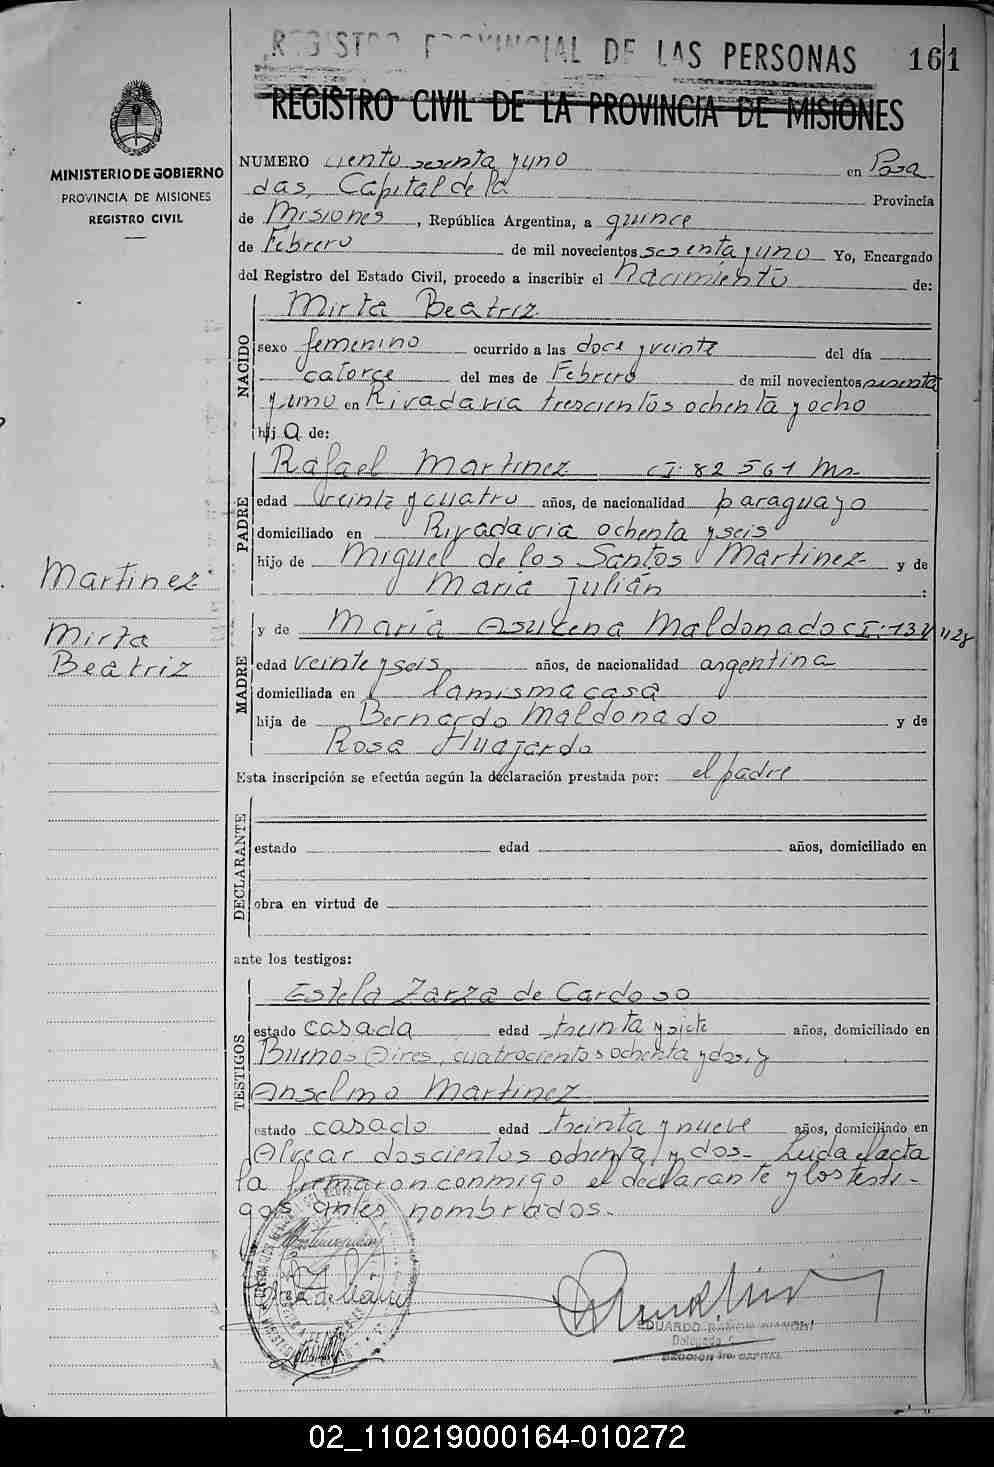 REGISTRO PROVINCIAL DE LAS PERSONAS
161
REGISTRO CIVIL DE LA PROVINCIA DE MISIONES
MINISTERIO DE GOBIERNO
PROVINCIA DE MISIONES
REGISTRO CIVIL
NUMERO ciento sesenta y uno en Posa
das, Capital de la Provincia
de Misiones, República Argentina, a quince
de Febrero de mil novecientos sesenta y uno Yo, Encargado
del Registro del Estado Civil, procedo a inscribir el Nacimiento de:
NACIDO
Mirta Beatriz
sexo femenino ocurrido a las doce y veinte del día
catorce del mes de Febrero de mil novecientos sesenta
y uno en Rivadavia trescientos ochenta y ocho
hija de:
PADRE
Rafael Martinez CI. 82561 Ms.
edad veinte y cuatro años, de nacionalidad paraguayo
domiciliado en Rivadavia ochenta y seis
hijo de Miguel de los Santos Martinez y de
Maria Julián
Martinez
Mirta
Beatriz
MADRE
y de María Asucena Maldonado CI.
edad veinte y seis años, de nacionalidad argentina
domiciliada en la misma casa
hija de Bernardo Maldonado y de
Rosa
Esta inscripción se efectúa según la declaración prestada por: el padre
DECLARANTE
estado edad años, domiciliado en
obra en virtud de
ante los testigos:
TESTIGOS
Estela Zarza de Cardoso
estado casada edad treinta y siete años, domiciliado en
Buenos Aires, cuatrocientos ochenta y dos, y
Anselmo Martinez
estado casado edad treinta y nueve años, domiciliado en
Alvear doscientos ochenta y dos. Leida el acta
la firmaron conmigo el declarante y los testi-
gos antes nombrados.
EDUARDO RAMON
Delegado
SECCION 1ra. CAPITAL
02_110219000164-010272